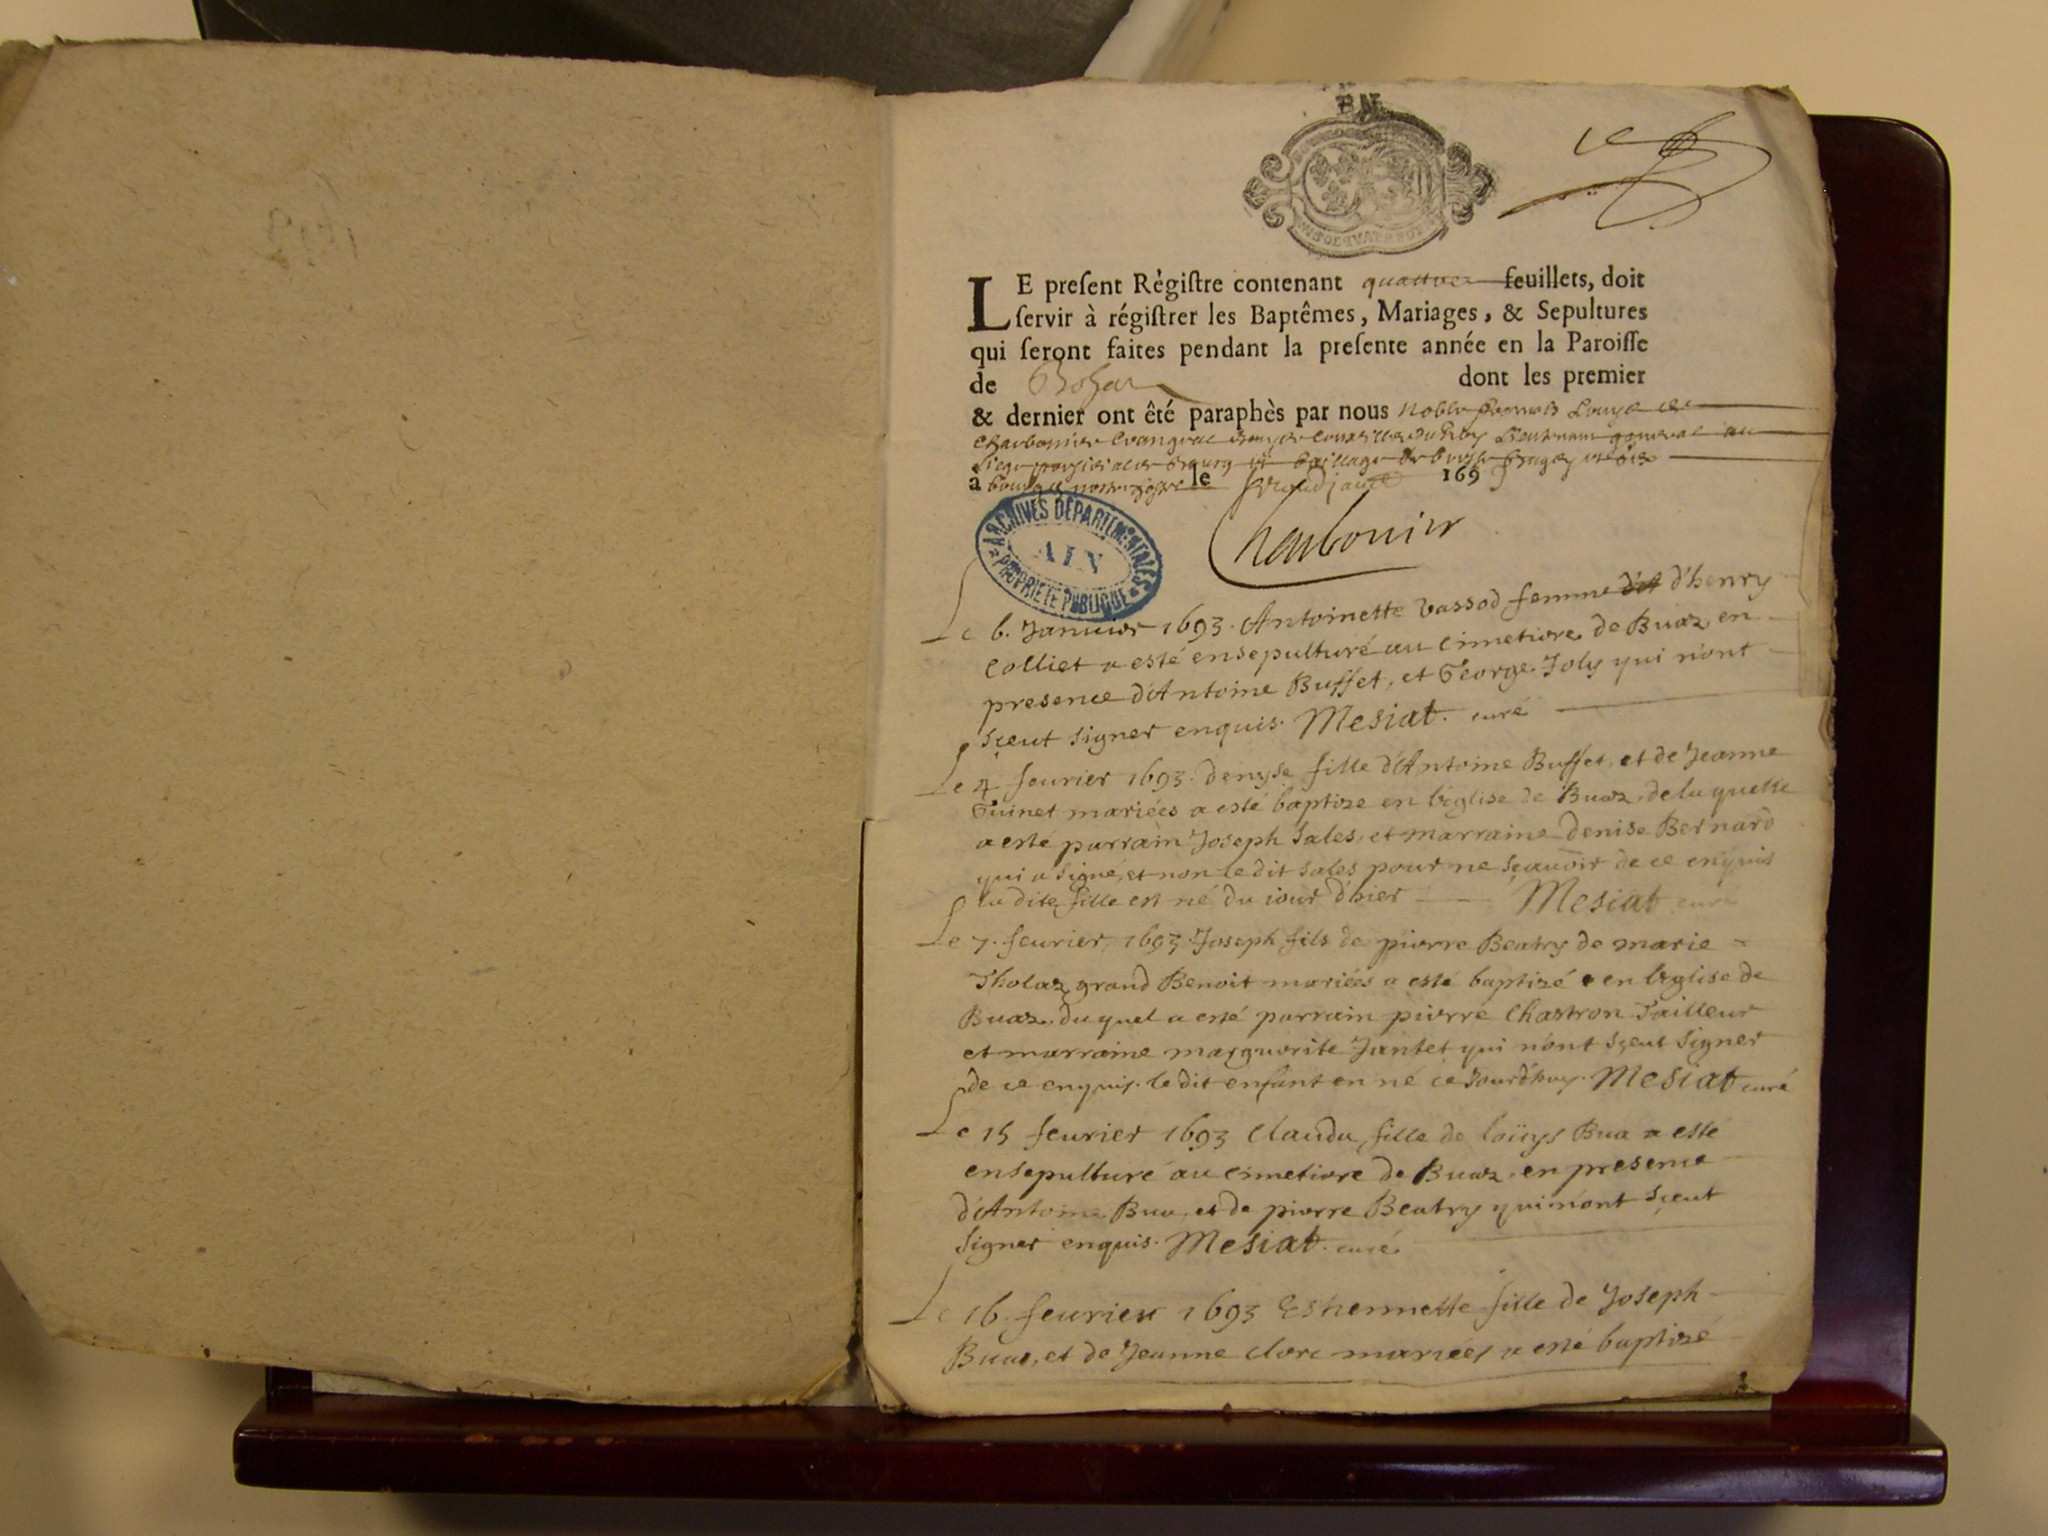 LE present Règistre contenant quattre feuillets, doit
servir à régistrer les Baptêmes, Mariages, & Sepultures
qui seront faites pendant la presente année en la Paroisse
de Bohas dont les premier
& dernier ont êté paraphès par nous Noble
Charbonnier Lieutenant general au
a bourg le 1693
Charbonier
ARCHIVES DEPARTEMENTALES
AIN
PROPRIETE PUBLIQUE
Le 6. Januier 1693. Antoinette Vassod femme d'henry
Colliet a esté ensepulturé au Cimetiere de Buaz en
presence d'Antoine Buffet, et George Joly qui n'ont
sçeut signer enquis. Mesiat. curé
Le 4 feurier 1693. denyse fille d'Antoine Buffet, et de Jeanne
Guinet mariées a esté baptize en l'eglise de Buaz, de laquelle
a esté parrain Joseph Sales, et marraine denise Bernard
qui a signé, et non le dit Sales pour ne sçauoir de ce enquis
la dite fille est né du iour d'hier Mesiat curé
Le 7. feurier, 1693 Joseph fils de pierre Beatry de marie
Tholaz grand Benoit mariées a esté baptizé en l'eglise de
Buaz. duquel a esté parrain pierre Chastron Tailleur
et marraine marguerite Jantet qui n'ont sçeut signer
de ce enquis. le dit enfant est né ce Jourd'huy. Mesiat curé
Le 15 feurier 1693 Clauda, fille de loüys Bua a esté
ensepulturé au Cimetiere de Buaz. en presence
d'Antoine Bua, et de pierre Beatry qui n'ont sçeut
signer enquis. Mesiat. curé.
Le 16. feurier 1693 Estiennette fille de Joseph
Buaz, et de Jeanne Clerc mariées a esté baptizé